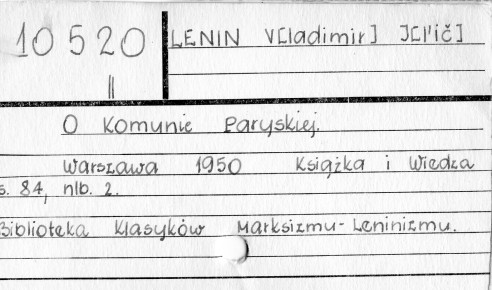 10520
II
LENIN V[ladimir] I[l'ič]
O Komunie Paryskiej.
Warszawa 1950 Książka i Wiedza
s. 84, nlb. 2.
Biblioteka Klasyków Marksizmu-Leninizmu.